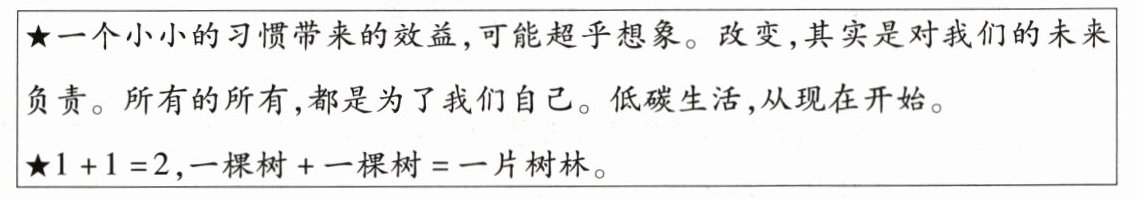 ★一个小小的习惯带来的效益,可能超乎想象。改变,其实是对我们的未来
负责。所有的所有,都是为了我们自己。低碳生活,从现在开始。
★1+1=2,一棵树+一棵树=一片树林。